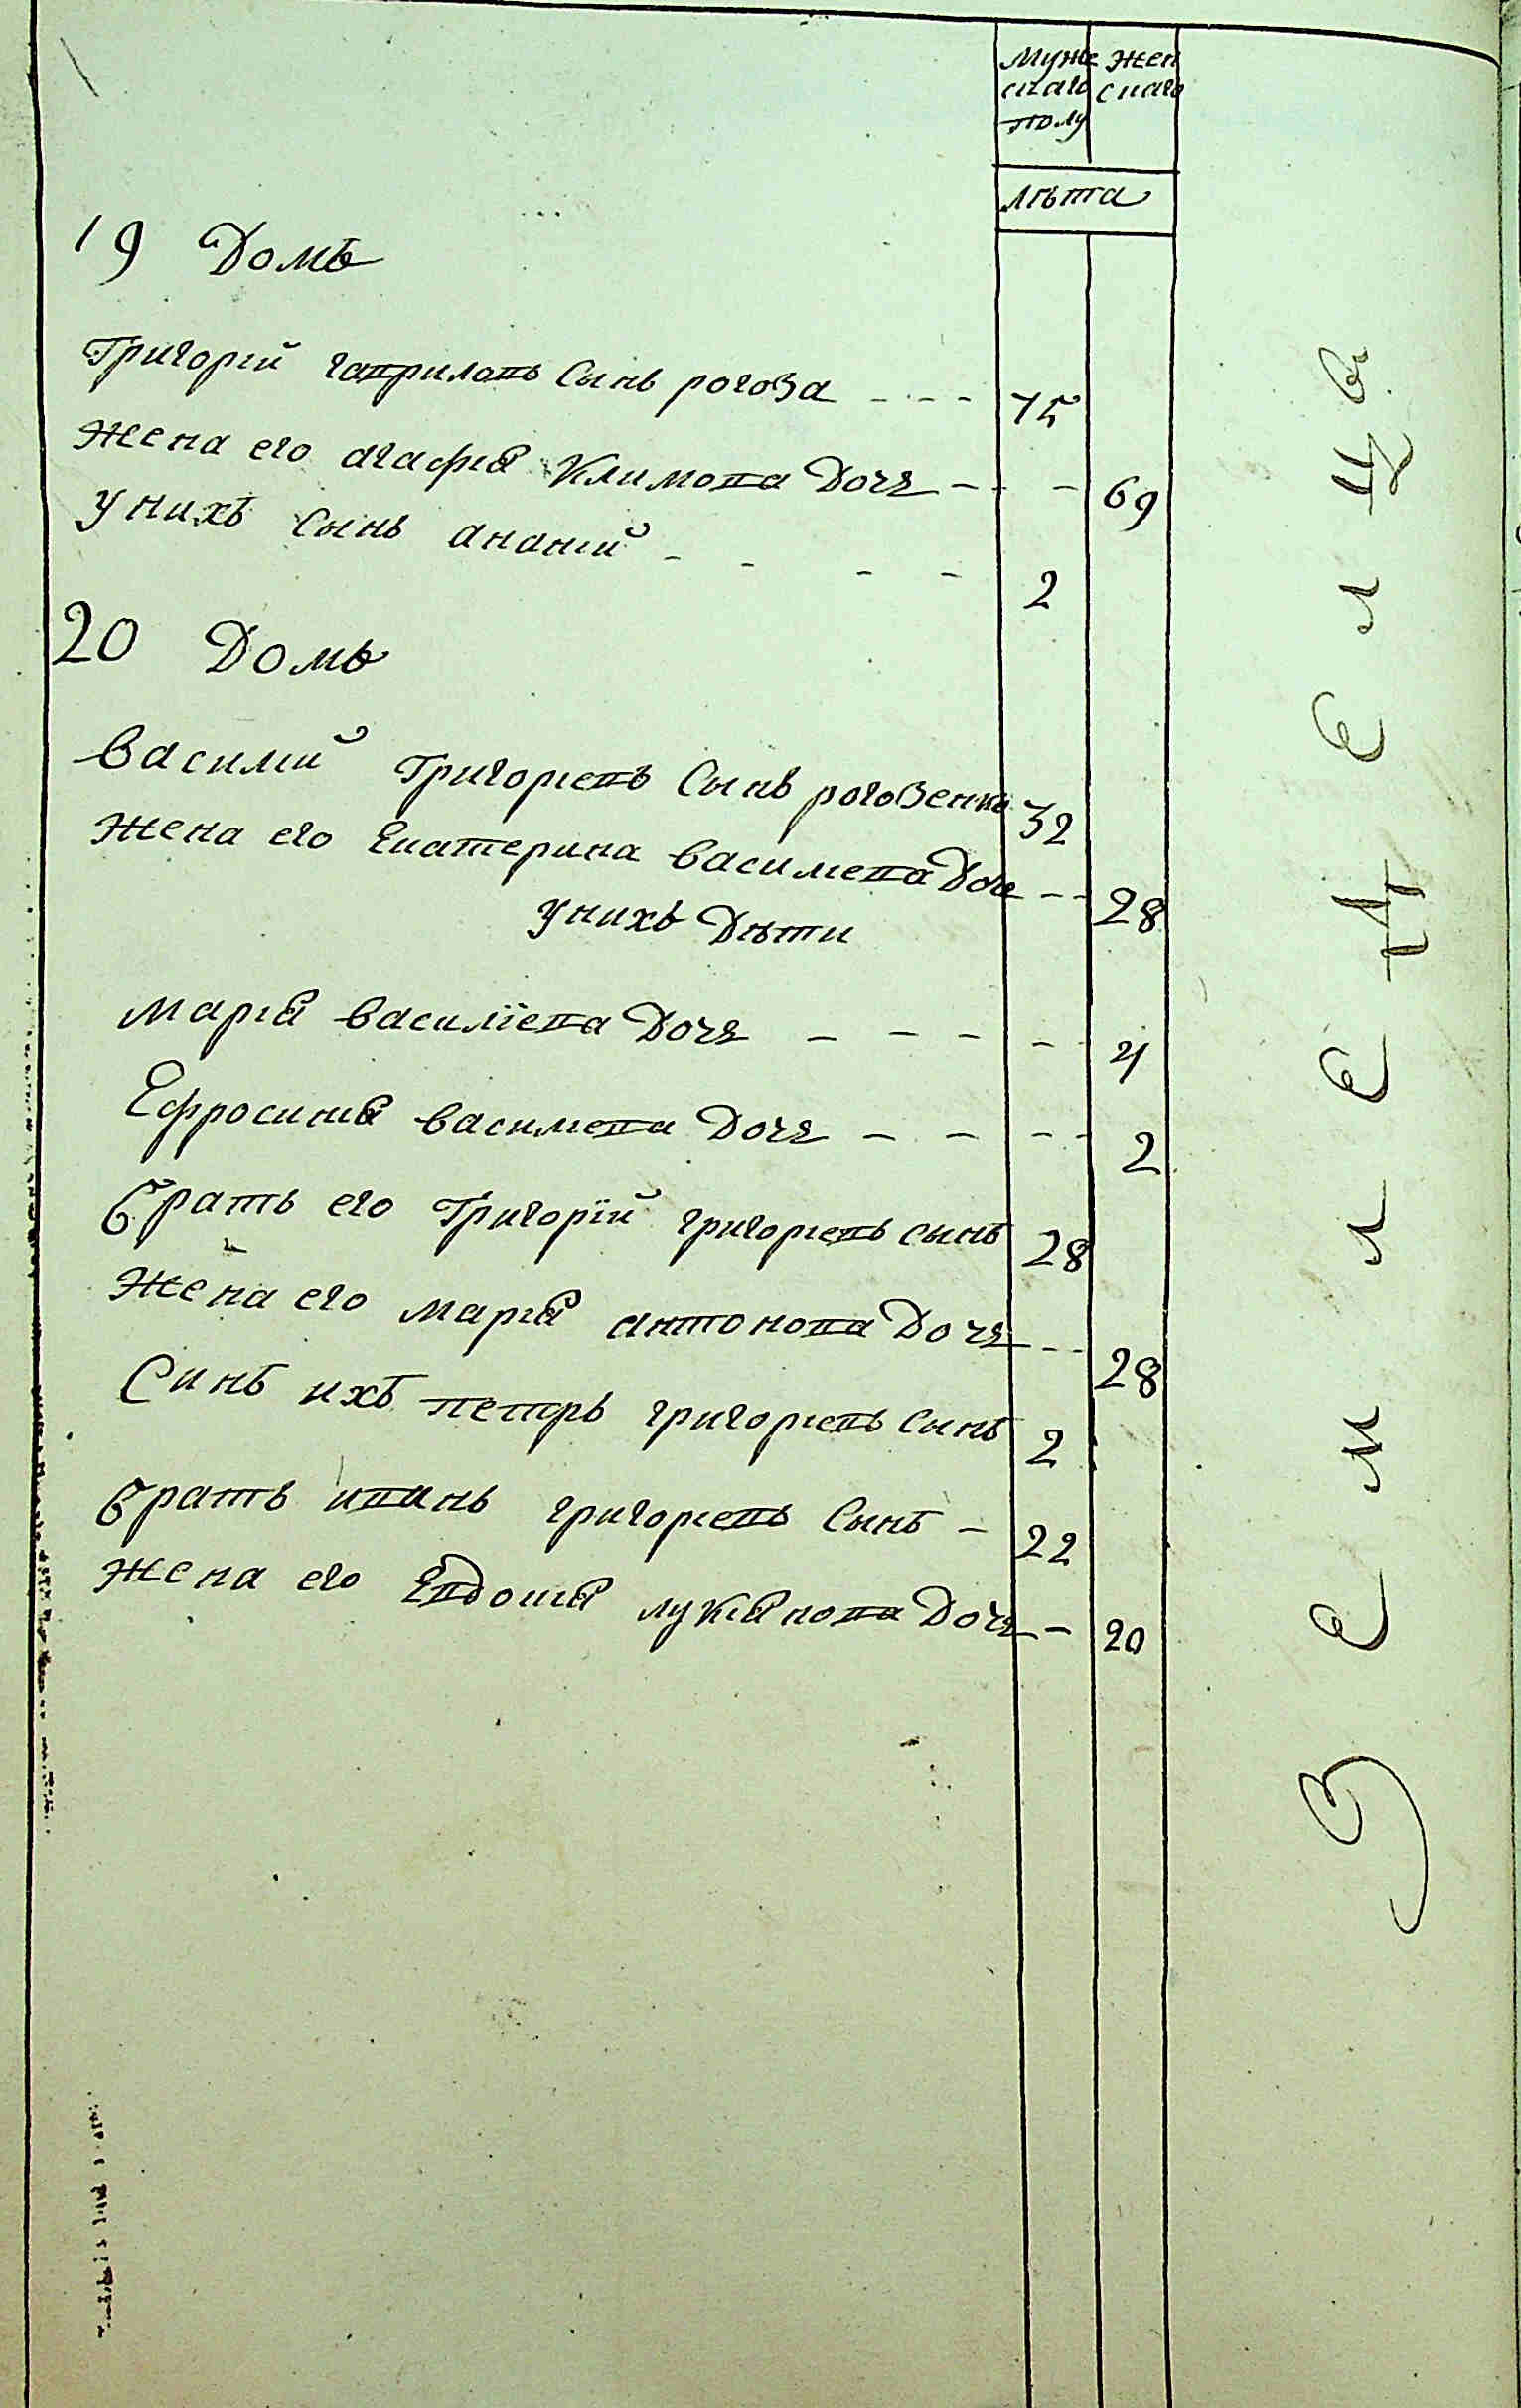 Муже Жен
скаго скаго
полу
лѣта
19 Домъ
Григорій гавриловъ Сынъ рогоза - - - 75
Жена его агафіа Климова Дочь - - - 69
унихъ Сынъ ананій - - - - 2
20 Домъ
Василій Григориевъ Сынъ рогозенко 32
Жена его Екатерина василиева Дочь - - 28
унихъ Дѣти
Маріа василіева Дочь - - - - 4
Ефросиніа василиева Дочь - - - - 2
братъ его Григорій григориевъ сынъ 28
Жена его маріа антонова Дочь - - 28
Синъ ихъ петръ григориевъ Сынъ 2
братъ иванъ григориевъ Сынъ - 22
Жена его Евдокіа лукіанова Дочь - - 20
Земледелцъ